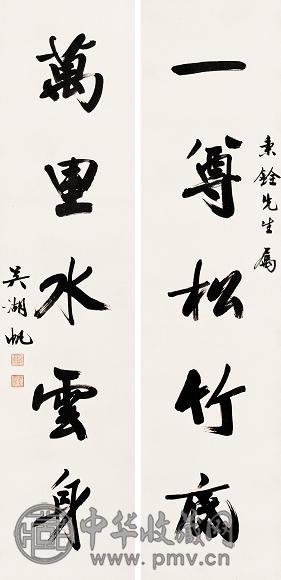 秉銓先生属
一尊松竹
萬里水雲身
吴湖帆
中华收藏网
www.pmv.cn